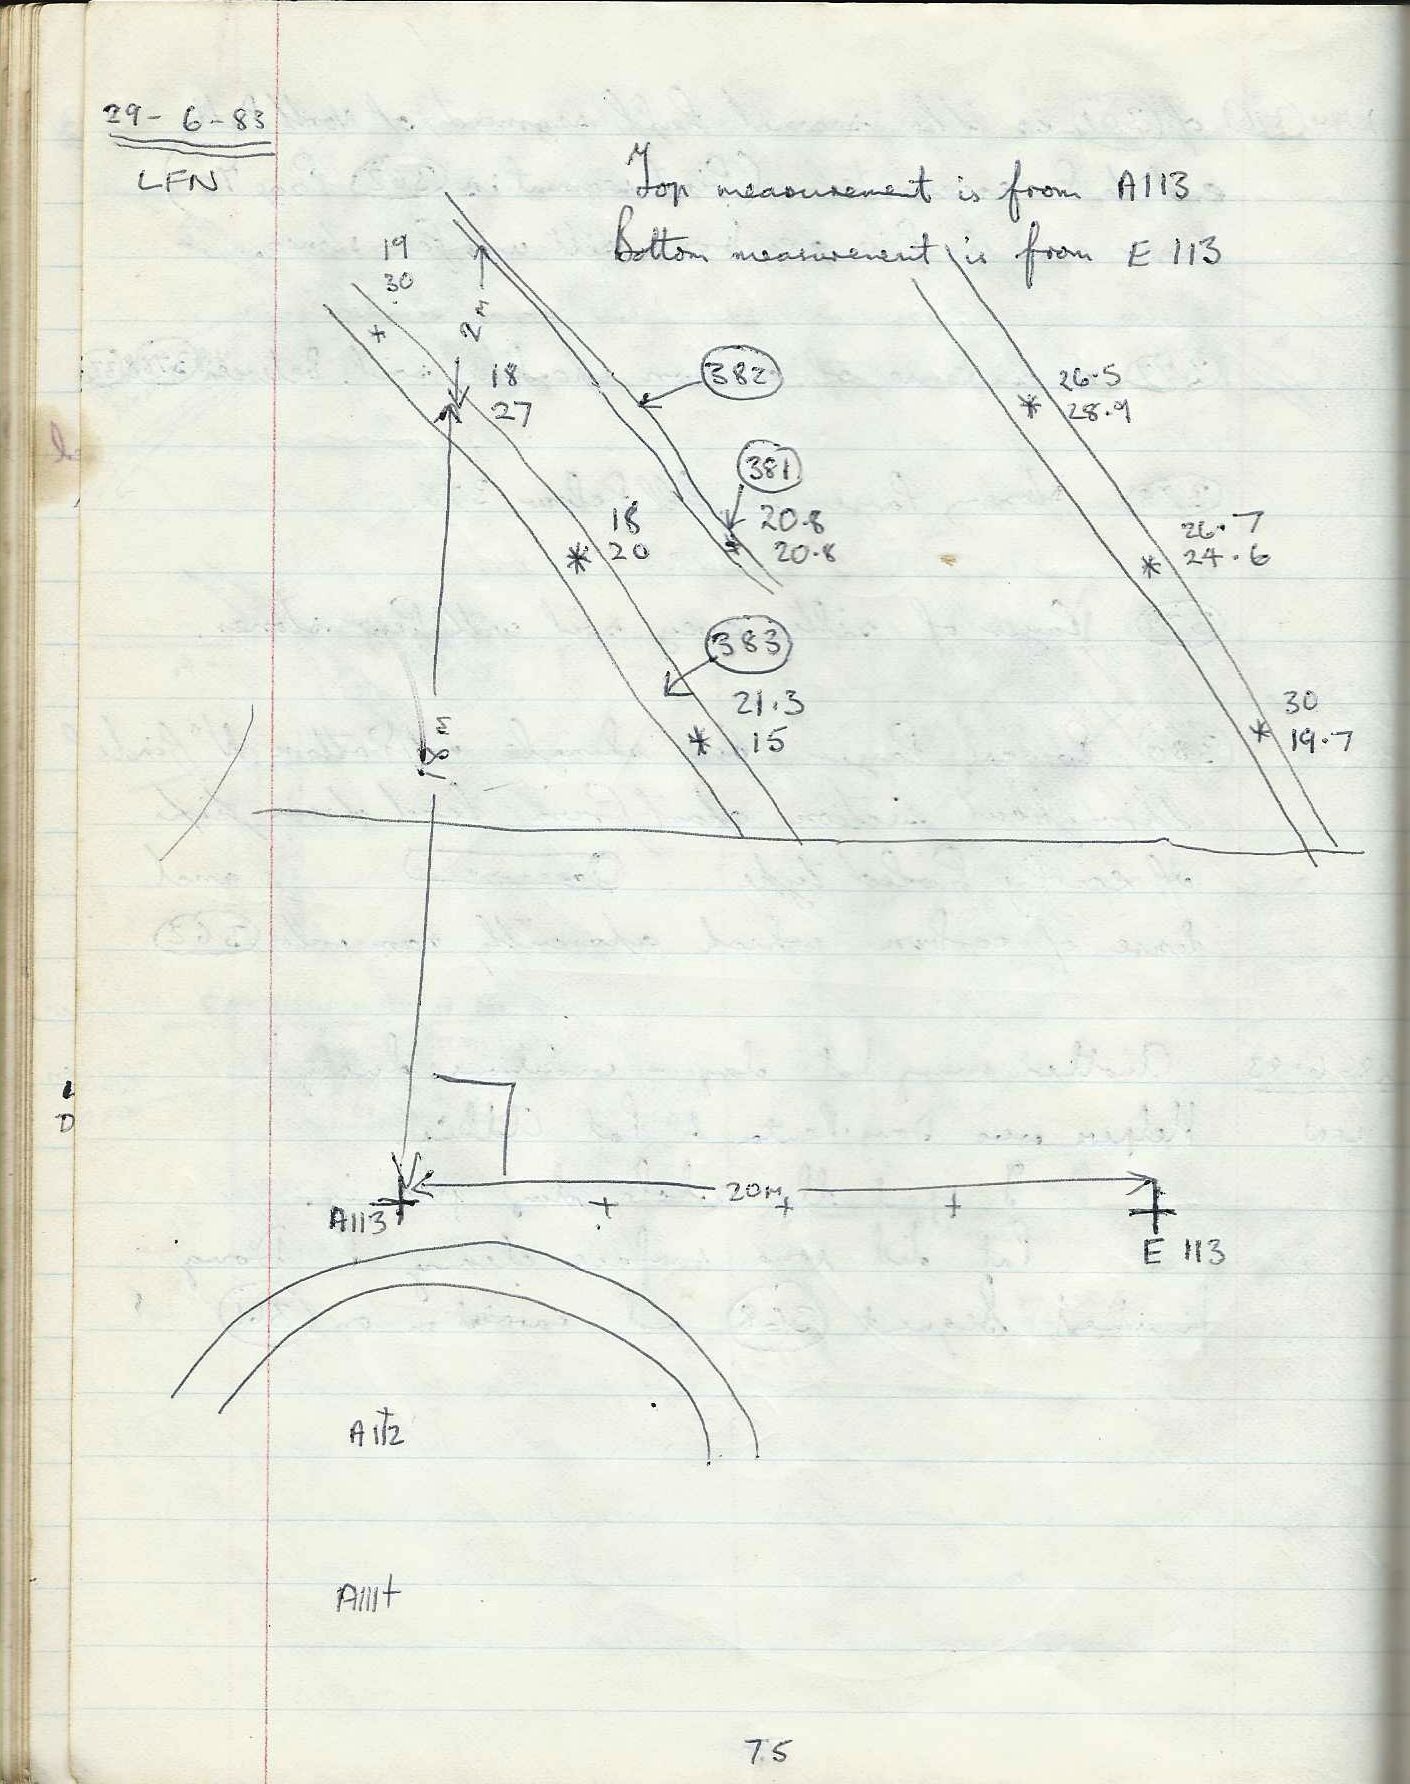 29-6-83
LFN
Top measurement is from A113
Bottom measurement is from E 113
19
30
2M
18
27
382
26.5
28.9
381
18
20
20.8
20.8
26.7
24.6
383
21.3
15
30
19.7
18m
A113
20M
E 113
A112
A111
75